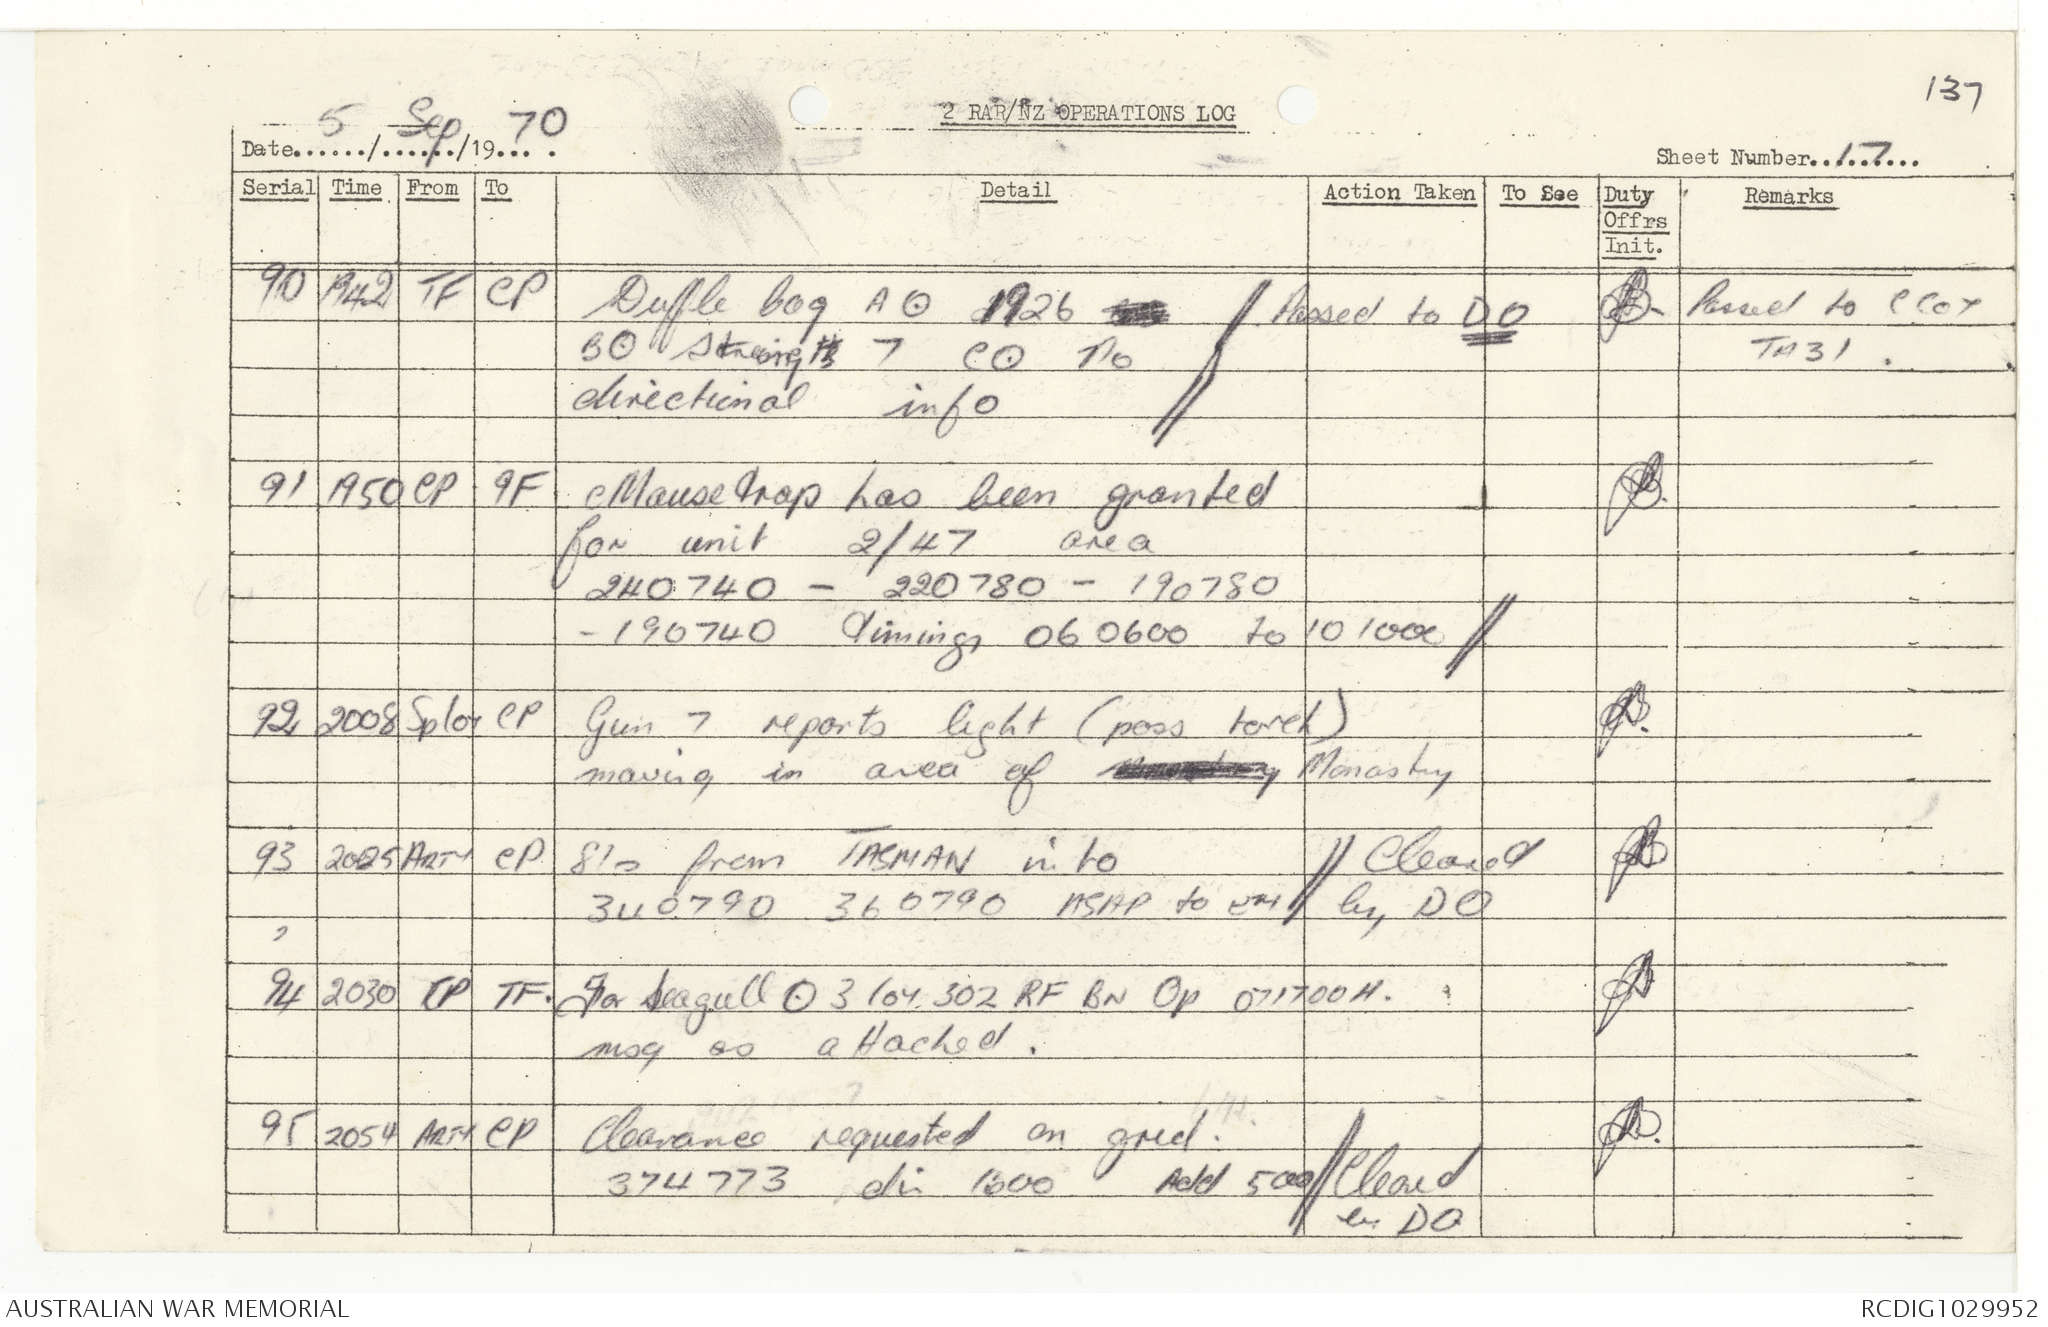 137
2 RAR/NZ OPERATIONS LOG
Date 5 / Sep /19 70
Sheet Number 17
Serial Time From To Detail Action Taken To See Duty Offrs Init. Remarks
90 1942 TF CP Duffle bag A O 1926 // Passed to DO Passed to
BO Strength 7 CO No TA31.
directional info //
91 1950 CP 9F Mousetrap has been granted
for unit 2/47 area
240740 - 220780 - 190780
- 190740 timings 060600 to 101000 //
92 2008 Sptoy CP Gun 7 reports light (poss torch)
moving in area of Monastry
93 2025 ARTY CP 81s from TASMAN into // Cleared
340790 360790 ASAP to by DO
94 2030 CP TF. For Seagull O 3 Coy. 302 RF BN Op 071700H.
msg as attached.
95 2054 ARTY CP Clearance requested on grid.
374773 dir 1600 Add 500 // Cleared
by DO
AUSTRALIAN WAR MEMORIAL
RCDIG1029952